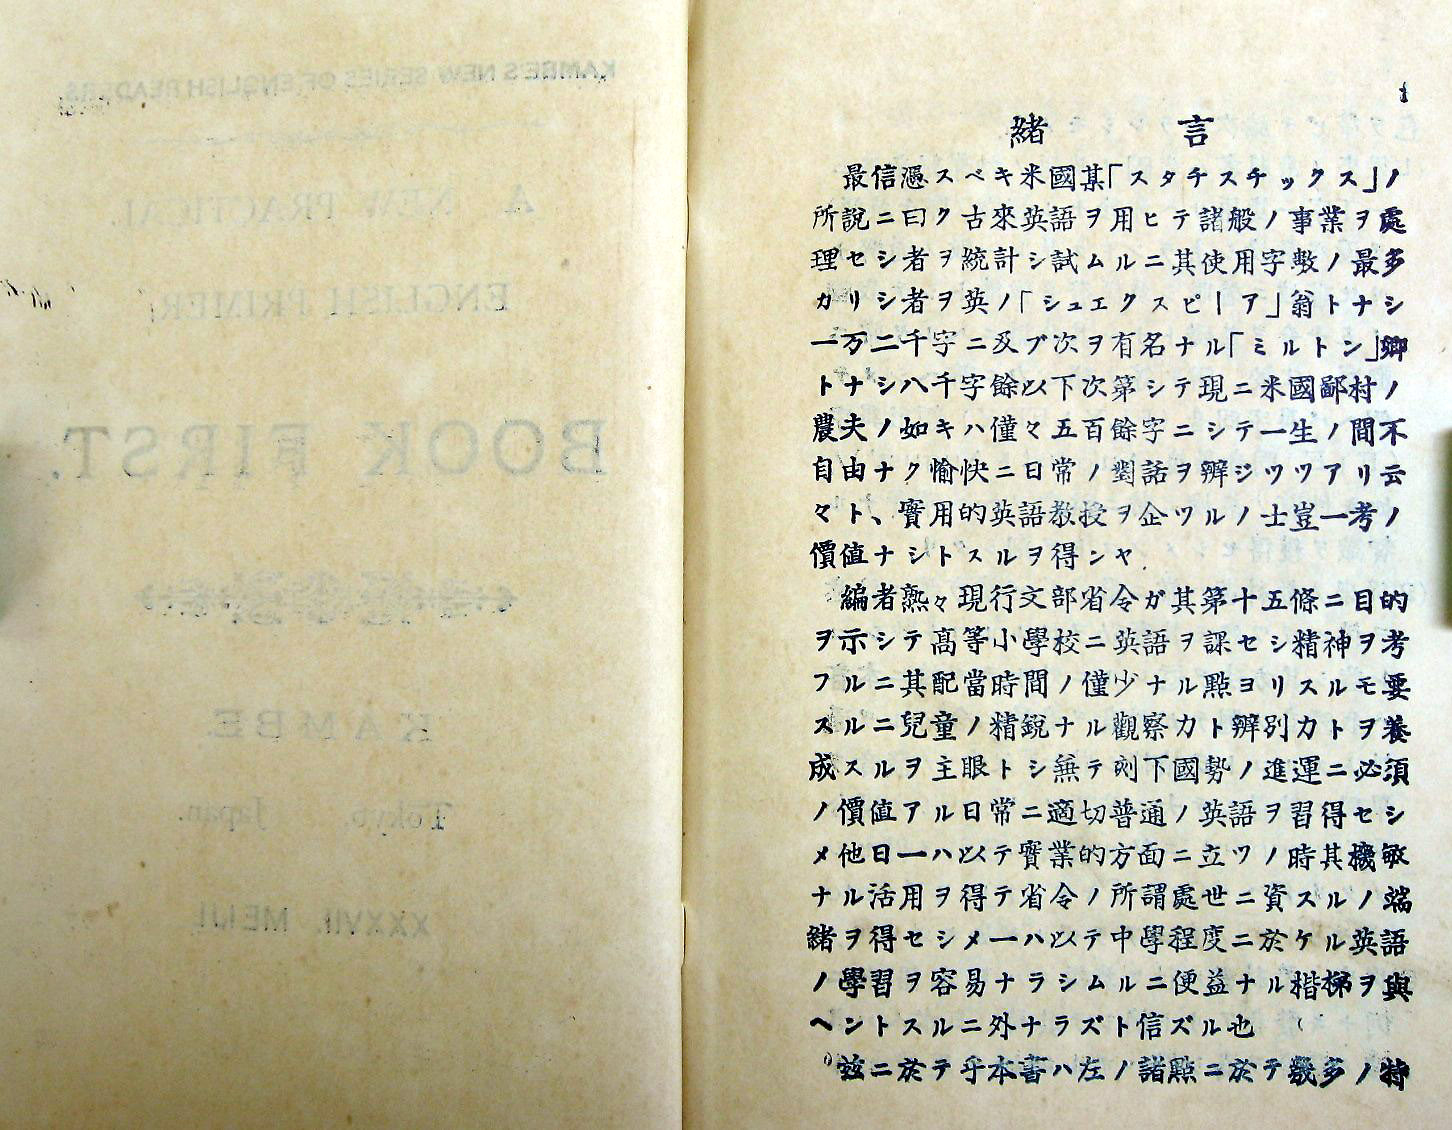 KAMBE'S NEW SERIES OF ENGLISH READERS.
A NEW PRACTICAL
ENGLISH PRIMER;
BOOK FIRST.
KAMBE.
Tokyo, Japan.
XXXVII. MEIJI.
1
緒言
最信憑スベキ米國某「スタチスチックス」ノ
所說ニ曰ク古來英語ヲ用ヒテ諸般ノ事業ヲ處
理セシ者ヲ統計シ試ムルニ其使用字數ノ最多
カリシ者ヲ英ノ「シュエクスピーア」翁トナシ
一万二千字ニ及ブ次ヲ有名ナル「ミルトン」卿
トナシ八千字餘以下次第シテ現ニ米國鄙村ノ
農夫ノ如キハ僅々五百餘字ニシテ一生ノ間不
自由ナク愉快ニ日常ノ對話ヲ辨ジツツアリ云
々ト、實用的英語敎授ヲ企ツルノ士豈一考ノ
價値ナシトスルヲ得ンヤ
編者熟々現行文部省令ガ其第十五條ニ目的
ヲ示シテ高等小學校ニ英語ヲ課セシ精神ヲ考
フルニ其配當時間ノ僅少ナル點ヨリスルモ要
スルニ兒童ノ精銳ナル觀察力ト辨別力トヲ養
成スルヲ主眼トシ無テ刻下國勢ノ進運ニ必須
ノ價值アル日常ニ適切普通ノ英語ヲ習得セシ
メ他日一ハ以テ實業的方面ニ立ツノ時其機敏
ナル活用ヲ得テ省令ノ所謂處世ニ資スルノ端
緒ヲ得セシメ一ハ以テ中學程度ニ於ケル英語
ノ學習ヲ容易ナラシムルニ便益ナル楷梯ヲ與
ヘントスルニ外ナラズト信ズル也
玆ニ於テ乎本書ハ左ノ諸點ニ於テ幾多ノ特